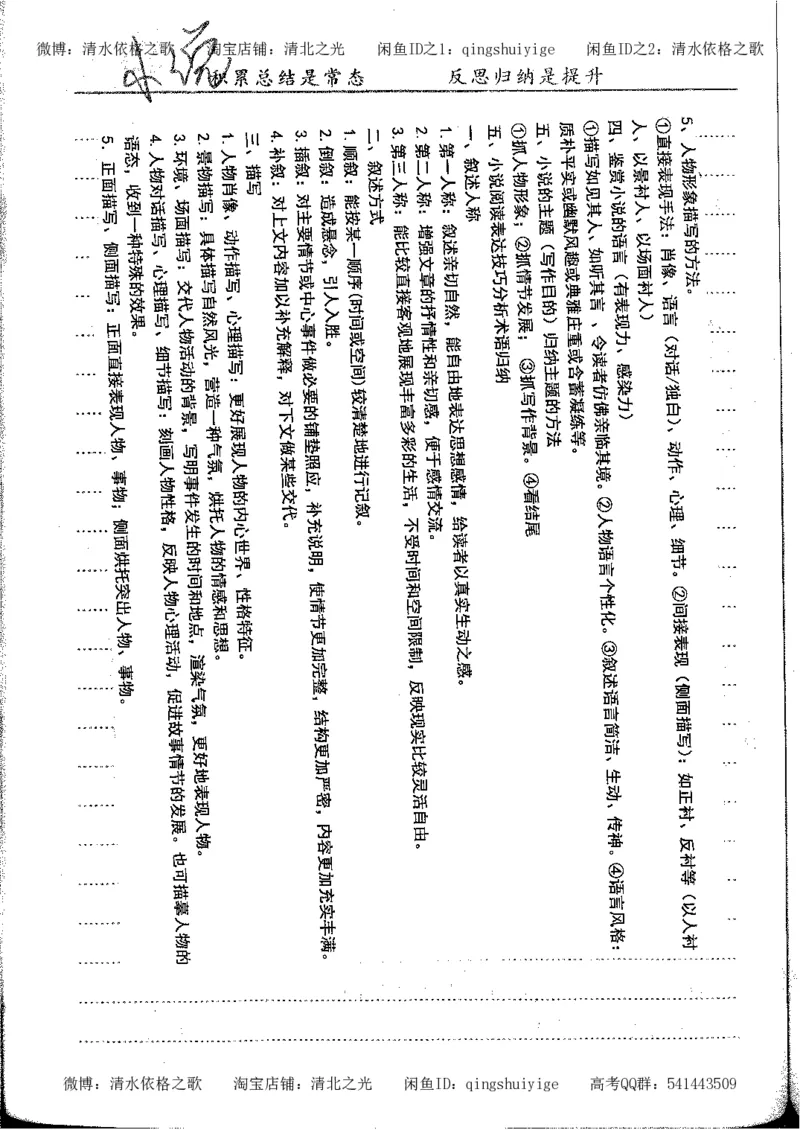 微博：清水依格之歌 淘宝店铺：清北之光 闲鱼ID之1：qingshuiyige 闲鱼ID之2：清水依格之歌
积累总结是常态 反思归纳是提升
5、人物形象描写的方法。
①直接表现手法：肖像、语言（对话/独白）、动作、心理、细节。②间接表现（侧面描写）：如正衬、反衬等（以人衬
人、以景衬人、以场面衬人）
四、鉴赏小说的语言（有表现力、感染力）
①描写如见其人、如听其言 、令读者仿佛亲临其境。②人物语言个性化。③叙述语言简洁、生动、传神。④语言风格：
质朴平实或幽默风趣或典雅庄重或含蓄凝练等。
五、小说的主题（写作目的）归纳主题的方法
①抓人物形象；②抓情节发展； ③抓写作背景。④看结尾
五、小说阅读表达技巧分析术语归纳
一、叙述人称
1.第一人称：叙述亲切自然，能自由地表达思想感情，给读者以真实生动之感。
2.第二人称：增强文章的抒情性和亲切感，便于感情交流。
3.第三人称：能比较直接客观地展现丰富多彩的生活，不受时间和空间限制，反映现实比较灵活自由。
二、叙述方式
1.顺叙：能按某一顺序(时间或空间)较清楚地进行记叙。
2.倒叙：造成悬念，引人入胜。
3.插叙：对主要情节或中心事件做必要的铺垫照应，补充说明，使情节更加完整，结构更加严密，内容更加充实丰满。
4.补叙：对上文内容加以补充解释，对下文做某些交代。
三、描写
1.人物肖像、动作描写、心理描写：更好展现人物的内心世界、性格特征。
2.景物描写：具体描写自然风光，营造一种气氛，烘托人物的情感和思想。
3.环境、场面描写：交代人物活动的背景，写明事件发生的时间和地点，渲染气氛，更好地表现人物。
4.人物对话描写、心理描写、细节描写：刻画人物性格，反映人物心理活动，促进故事情节的发展。也可描摹人物的
语态，收到一种特殊的效果。
5.正面描写、侧面描写：正面直接表现人物、事物；侧面烘托突出人物、事物。
微博：清水依格之歌 淘宝店铺：清北之光 闲鱼ID：qingshuiyige 高考QQ群：541443509